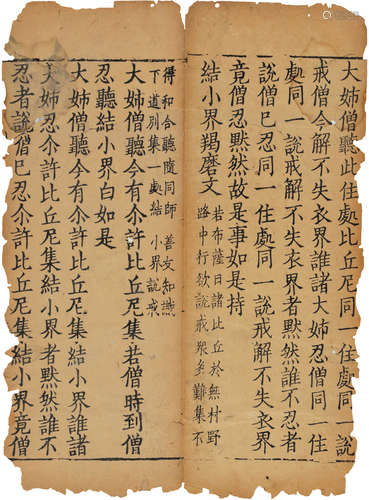 大姊僧聽此住處比丘尼同一住處同一說
戒僧今解不失衣界誰諸大姊忍僧同一住
處同一說戒解不失衣界者默然誰不忍者
說僧已忍同一住處同一說戒解不失衣界
竟僧忍默然故是事如是持
結小界羯磨文
若布薩日諸比丘於無村野
路中行欲說戒眾多難集不
得和合聽隨同師善友知識
下道別集一處結小界說戒
大姊僧聽今有尒許比丘尼集若僧時到僧
忍聽結小界白如是
大姊僧聽今有尒許比丘尼集結小界誰諸
大姊忍尒許比丘尼集結小界者默然誰不
忍者說僧已忍尒許比丘尼集結小界竟僧